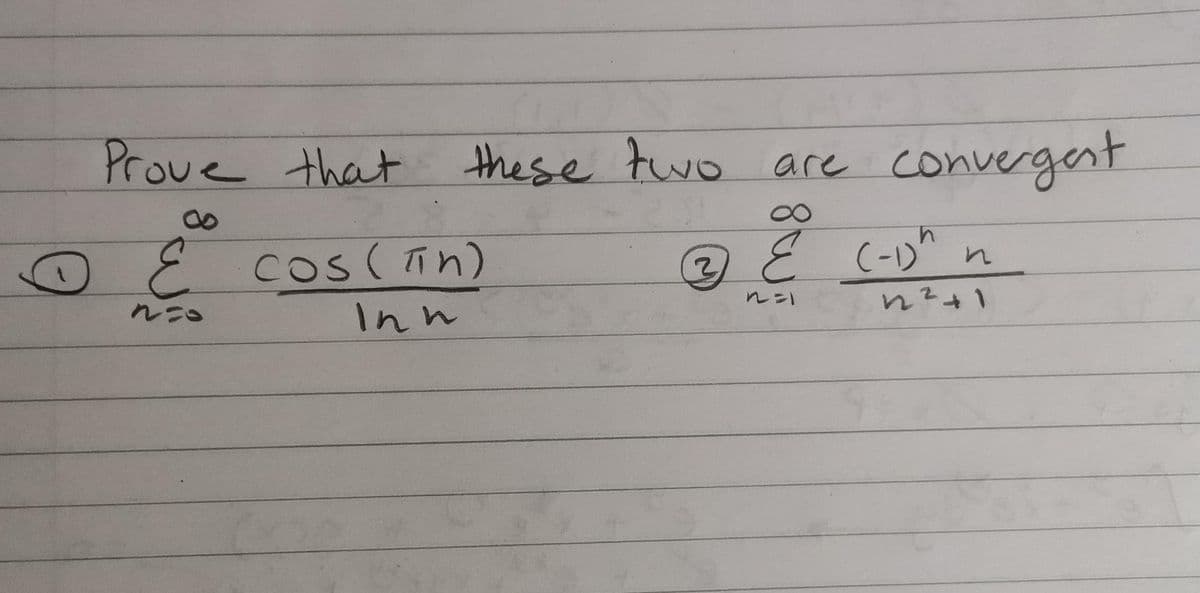 Prove that these two are convergent
① ∞ Σ n=0 cos(πn) / ln n ② ∞ Σ n=1 (-1)ⁿ n / n²+1